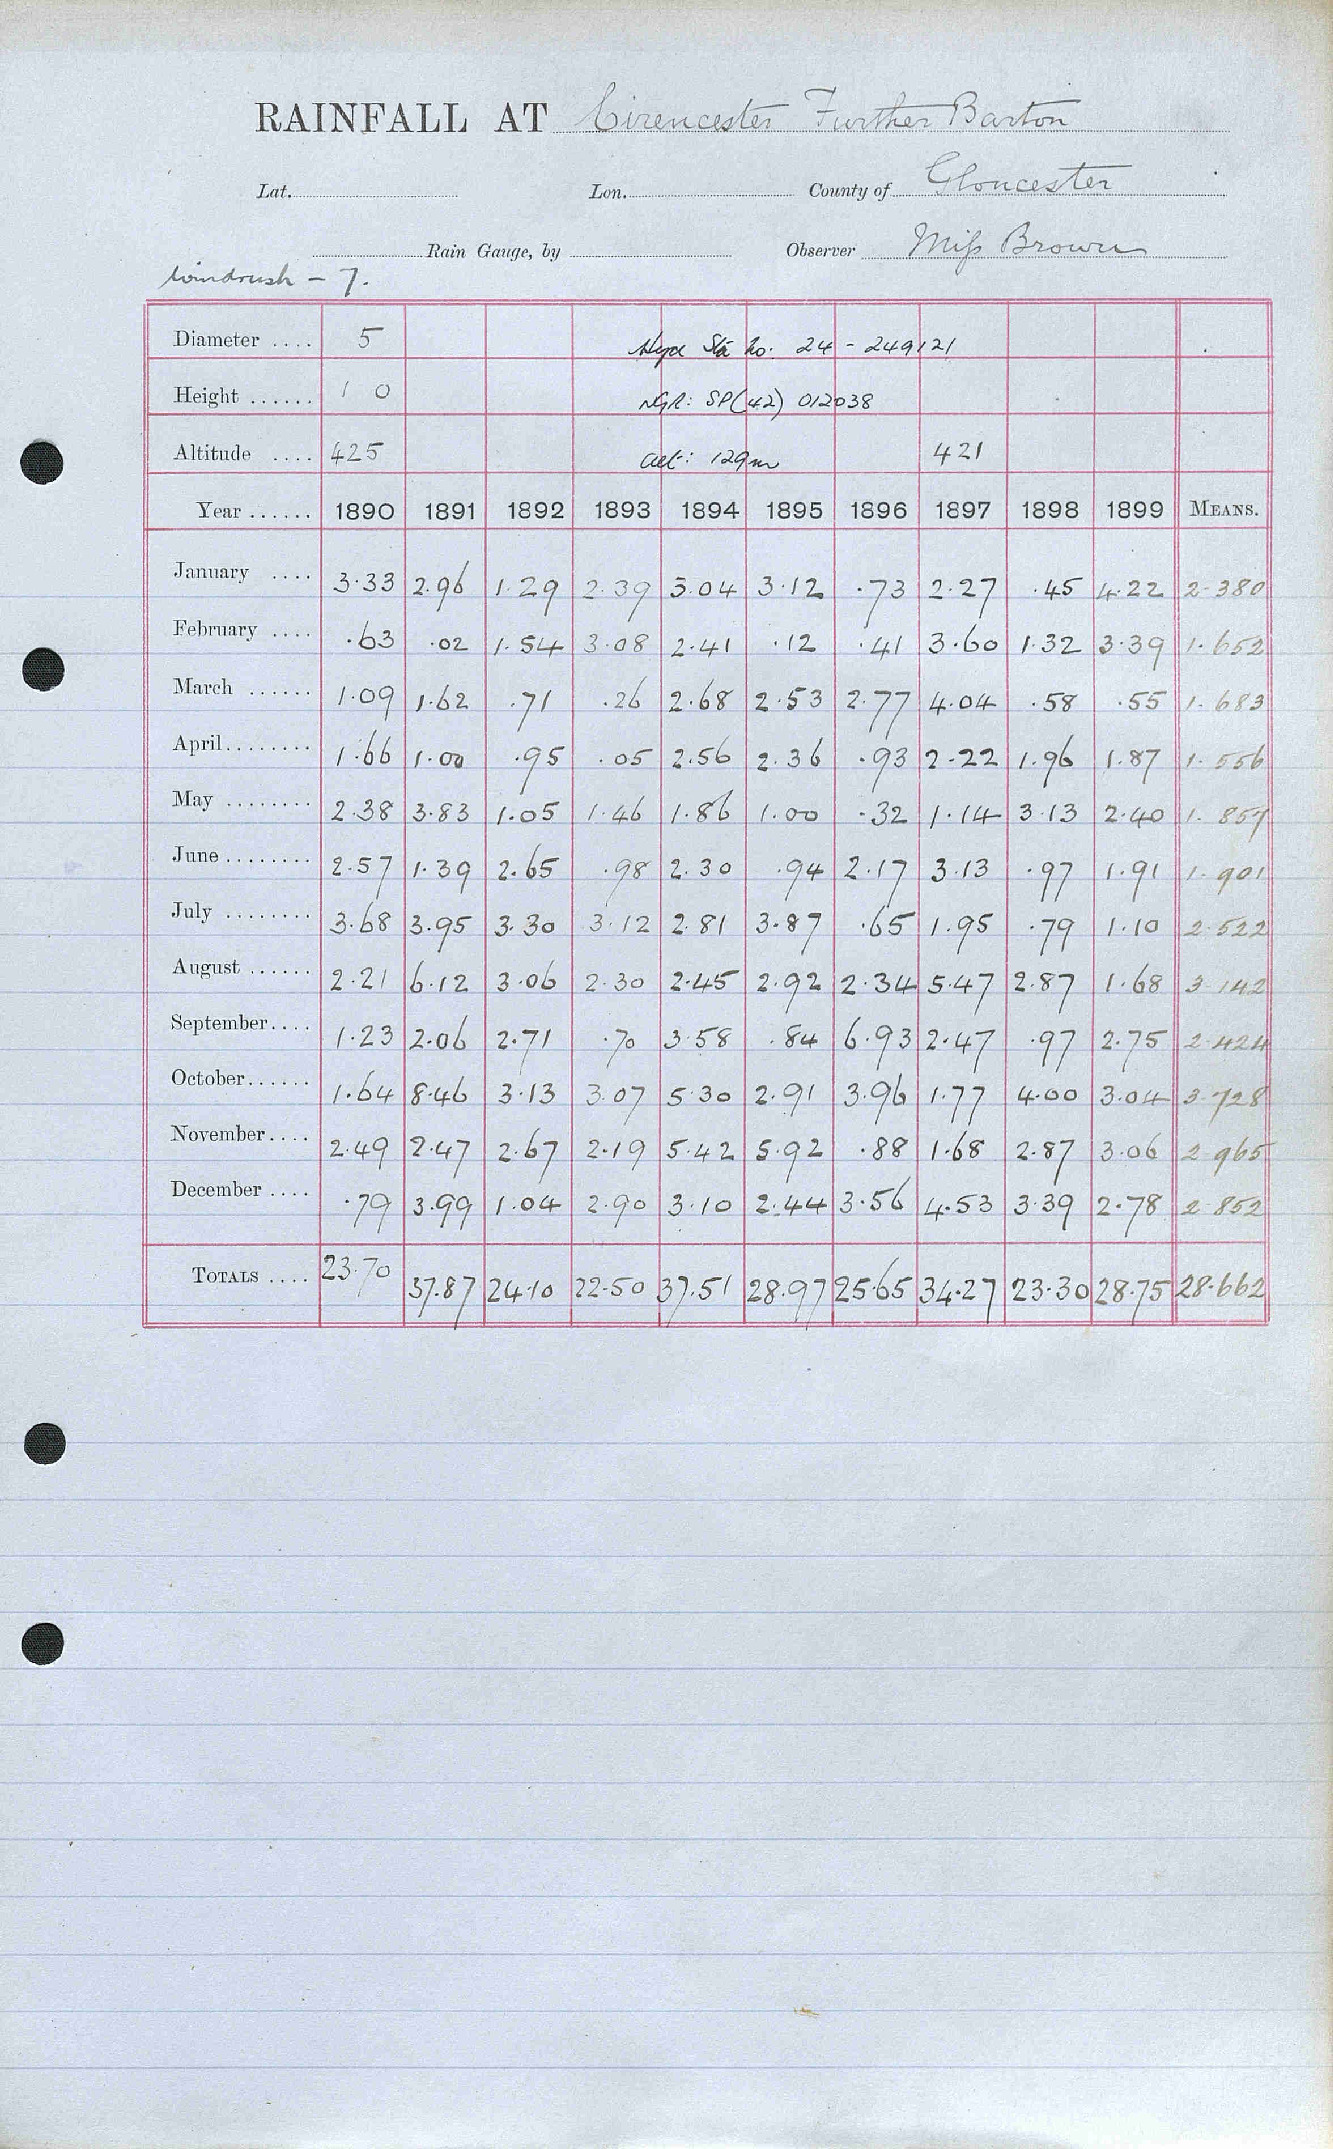 RAINFALL AT Cirencester Further Barton
Lat. Lon. County of Gloucester
Rain Gauge, by Observer Miss Brown
Windrush - 7.
Diameter .... 5 Hyd Sta No: 24 - 249121
Height ...... 1 0 NGR: SP(42) 012038
Altitude .... 425 alt: 129m 421
Year ...... 1890 1891 1892 1893 1894 1895 1896 1897 1898 1899 MEANS.
January .... 3.33 2.96 1.29 2.39 3.04 3.12 .73 2.27 .45 4.22 2.380
February .... .63 .02 1.54 3.08 2.41 .12 .41 3.60 1.32 3.39 1.652
March ...... 1.09 1.62 .71 .26 2.68 2.53 2.77 4.04 .58 .55 1.683
April........ 1.66 1.00 .95 .05 2.56 2.36 .93 2.22 1.96 1.87 1.556
May ........ 2.38 3.83 1.05 1.46 1.86 1.00 .32 1.14 3.13 2.40 1.857
June........ 2.57 1.39 2.65 .98 2.30 .94 2.17 3.13 .97 1.91 1.901
July ........ 3.68 3.95 3.30 3.12 2.81 3.87 .65 1.95 .79 1.10 2.522
August ...... 2.21 6.12 3.06 2.30 2.45 2.92 2.34 5.47 2.87 1.68 3.142
September.... 1.23 2.06 2.71 .70 3.58 .84 6.93 2.47 .97 2.75 2.424
October...... 1.64 8.46 3.13 3.07 5.30 2.91 3.96 1.77 4.00 3.04 3.728
November.... 2.49 2.47 2.67 2.19 5.42 5.92 .88 1.68 2.87 3.06 2.965
December .... .79 3.99 1.04 2.90 3.10 2.44 3.56 4.53 3.39 2.78 2.852
TOTALS .... 23.70 37.87 24.10 22.50 37.51 28.97 25.65 34.27 23.30 28.75 28.662